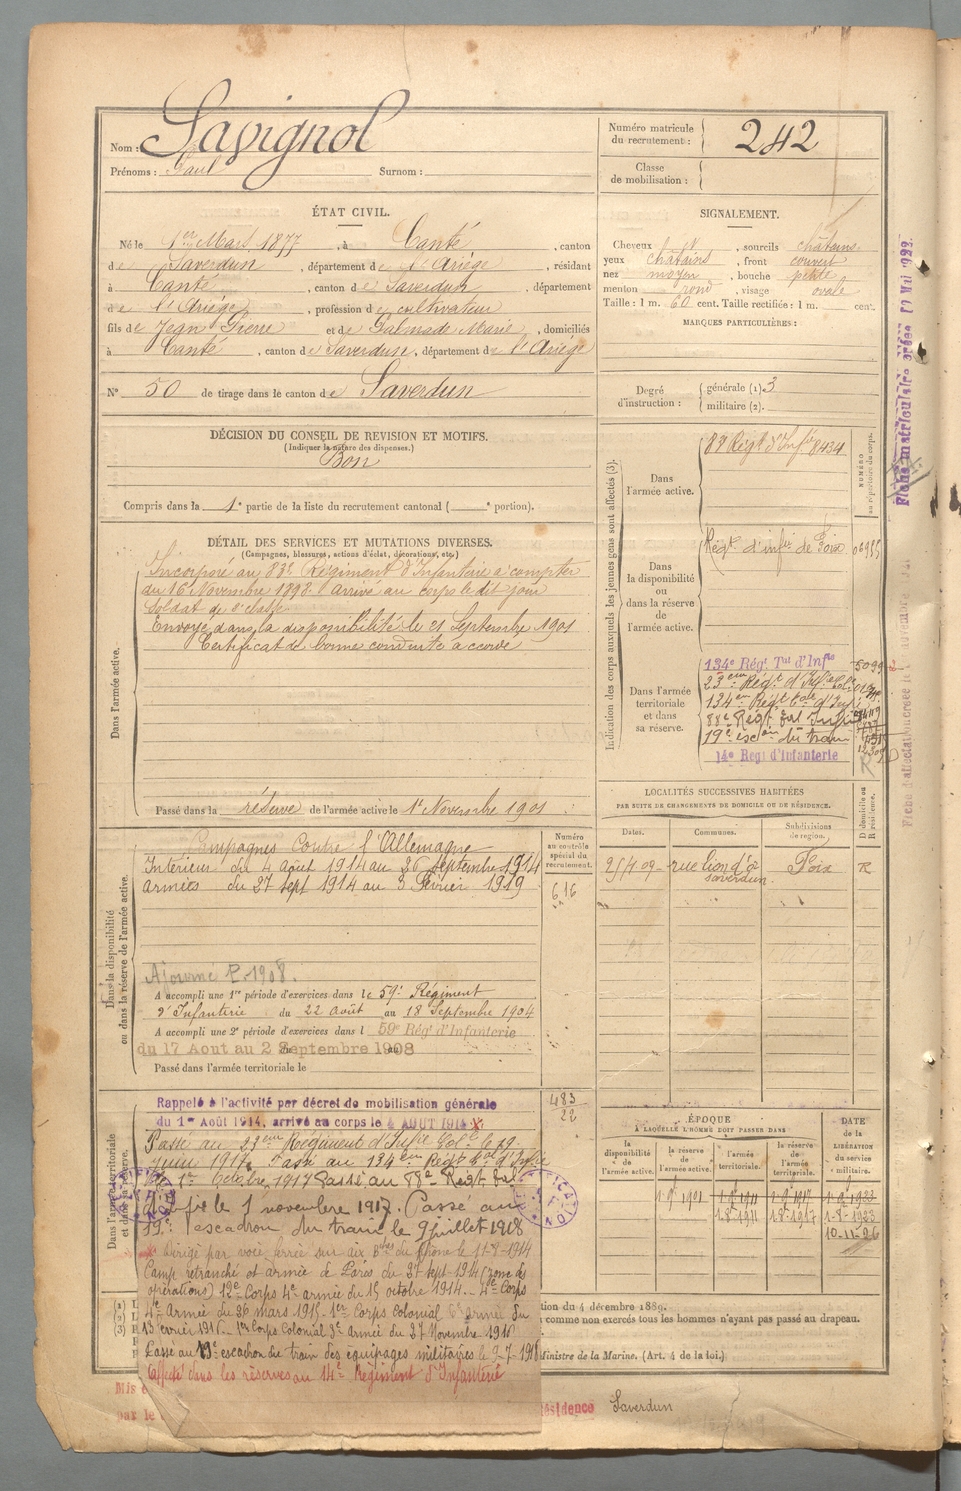 Nom : Savignol
Prénoms : Paul Surnom :
Numéro matricule du recrutement : 242
Classe de mobilisation :
ÉTAT CIVIL.
Né le 1er Mars 1877, à Canté, canton
de Saverdun, département de l'Ariège, résidant
à Canté, canton de Saverdun, département
de l'Ariège, profession de cultivateur
fils de Jean Pierre et de Marie, domiciliés
à Canté, canton de Saverdun, département de l'Ariège
N° 50 de tirage dans le canton de Saverdun
SIGNALEMENT.
Cheveux , sourcils châtains
yeux châtains, front couvert
nez moyen, bouche petite
menton rond, visage ovale
Taille : 1 m. 60 cent. Taille rectifiée : 1 m. cent.
MARQUES PARTICULIÈRES :
Degré d'instruction : générale (1) 3
militaire (2).
DÉCISION DU CONSEIL DE REVISION ET MOTIFS.
(Indiquer la nature des dispenses.)
Bon
Compris dans la 1e partie de la liste du recrutement cantonal ( e portion).
DÉTAIL DES SERVICES ET MUTATIONS DIVERSES.
(Campagnes, blessures, actions d'éclat, décorations, etc.)
Dans l'armée active.
Incorporé au 83e Régiment d'Infanterie à compter
du 16 Novembre 1898. Arrivé au corps le dit jour
Soldat de 2e classe
Envoyé dans la disponibilité le 21 Septembre 1901
Certificat de bonne conduite accordé
Passé dans la réserve de l'armée active le 1er Novembre 1901
Indication des corps auxquels les jeunes gens sont affectés (3).
NUMÉRO au répertoire du corps.
Dans l'armée active.
Régt d'Infie 8434
Dans la disponibilité ou dans la réserve de l'armée active.
Régt d'infie de Foix
Dans l'armée territoriale et dans sa réserve.
134e Régt Tal d'Infie
23eme Régt d'Infie Cole
134em Régt tal d'Infie
88e Régt tal Infie
19e escon du train
14e Régt d'Infanterie
LOCALITÉS SUCCESSIVES HABITÉES
PAR SUITE DE CHANGEMENTS DE DOMICILE OU DE RÉSIDENCE.
Dates. Communes. Subdivisions de région. D domicile ou R résidence.
rue lion d'or Saverdun Foix R
Dans la disponibilité ou dans la réserve de l'armée active.
Numéro au contrôle spécial du recrutement.
616
Campagnes contre l'Allemagne
Intérieur du 4 août 1914 au 26 septembre 1914
armées du 27 sept 1914 au 3 Février 1919
Ajourné 1908.
A accompli une 1re période d'exercices dans le 59e Régiment
d'Infanterie du 22 août au 18 Septembre 1904
A accompli une 2e période d'exercices dans l 59e Régt d'Infanterie
du 17 Aout au 2 Septembre 1908
Passé dans l'armée territoriale le
Dans l'armée territoriale et dans sa réserve.
483
22
Rappelé à l'activité par décret de mobilisation générale
du 1er Août 1914, arrivé au corps le 4 AOUT 1914
Passé au 23eme Régiment d'Infie Cole le 19
juin 1917. Passé au 134em Régt tal d'Infie
le 1er Octobre 1917 Passé au 88e Régt tal
d'Infie le 1 novembre 1917. Passé au
19e escadron du train le 9 juillet 1918
Dirigé par voie ferrée sur aix Bches du Rhône le 11-8-1914
Camp retranché et armée de Paris du 27 sept-1914 (zone des
opérations) 12e Corps 4e armée du 15 octobre 1914 - 4e Corps
4e Armée du 26 mars 1915 - 1er Corps Colonial armée du
13 février 1916 - 1er Corps Colonial 3e Armée du 27 Novembre 1916
Passé au 19e escadron du train des équipages militaires le 9-7-1918
Affecté dans les réserves au 14e Régiment d'Infanterie
ÉPOQUE
A LAQUELLE L'HOMME DOIT PASSER DANS
la disponibilité de l'armée active. la réserve de l'armée active. l'armée territoriale. la réserve de l'armée territoriale.
DATE de la LIBÉRATION du service militaire.
10-11-26
tion du 4 décembre 1889.
comme non exercés tous les hommes n'ayant pas passé au drapeau.
Ministre de la Marine. (Art. 4 de la loi.)
Mis e
par le
ésidence Saverdun